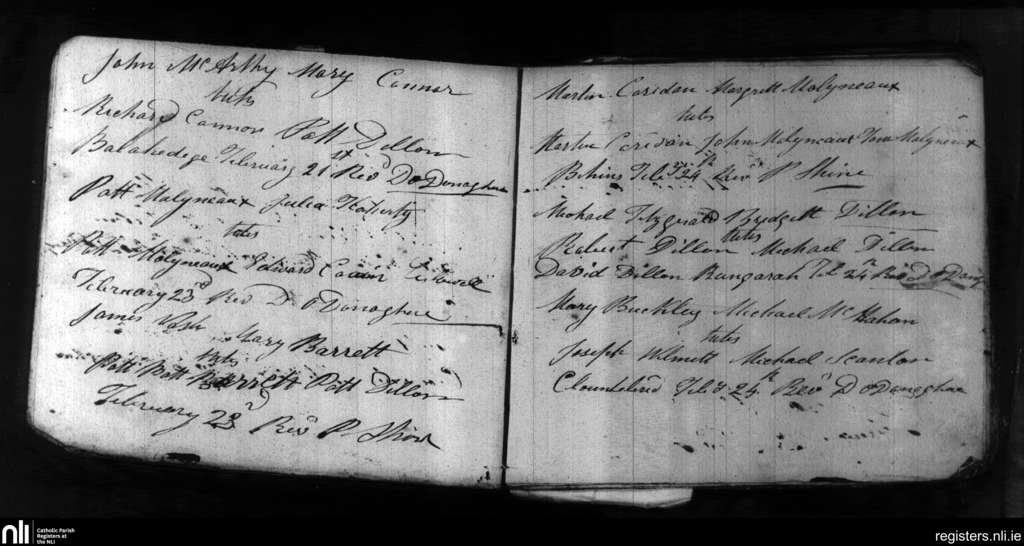 John McArthy Mary Connor
tests
Richard Connors Patt Dillon
Balahedige February 21st Revd D ODonaghue
Patt Molyneaux Julia Flaherty
tests
Patt Molyneaux Edward Listowell
February 23rd Revd D ODonaghue
James Mary Barrett
tests
Patt Barrett Patt Dillon
February 23d Revd P Shine
Martin Coridan Margrett Molyneaux
tests
Martin Coridan John Molyneaux Molyneaux
Behins Feby 24th Revd P Shine
Michael Fitzgerald Bridgett Dillon
tests
Robert Dillon Michael Dillon
David Dillon Rangarah Feb 24th Revd D ODonag
Mary Buckley Michael McMahon
tests
Joseph Wilmett Michael Scanlon
Feby 24th Revd D ODonaghue
nli
Catholic Parish
Registers at
the NLI
registers.nli.ie